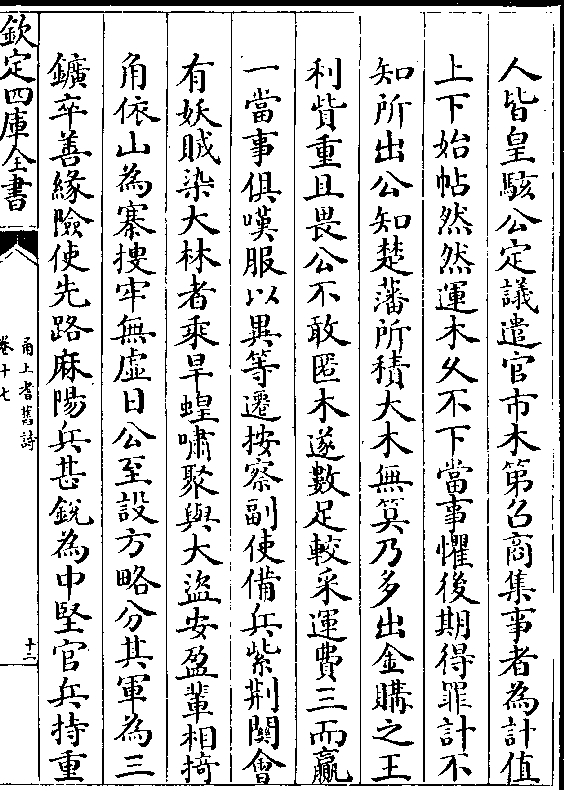 人皆皇駭公定議遣官市木第召商集事者為計值
上下始帖然然運木久不下當事懼後期得罪計不
知所出公知楚藩所積大木無筭乃多出金購之王
利貲重且畏公不敢匿木遂數足較采運費三而贏
一當事俱嘆服以異等遷按察副使備兵紫荆關會
有妖賊染大林者乘旱蝗嘯聚與大盜安盈輩相掎
角依山為寨摟牢無虛日公至設方略分其軍為三
鑛卒善緣險使先路麻陽兵甚銳為中堅官兵持重
欽定四庫全書
甬上耆舊詩
卷十七
十二